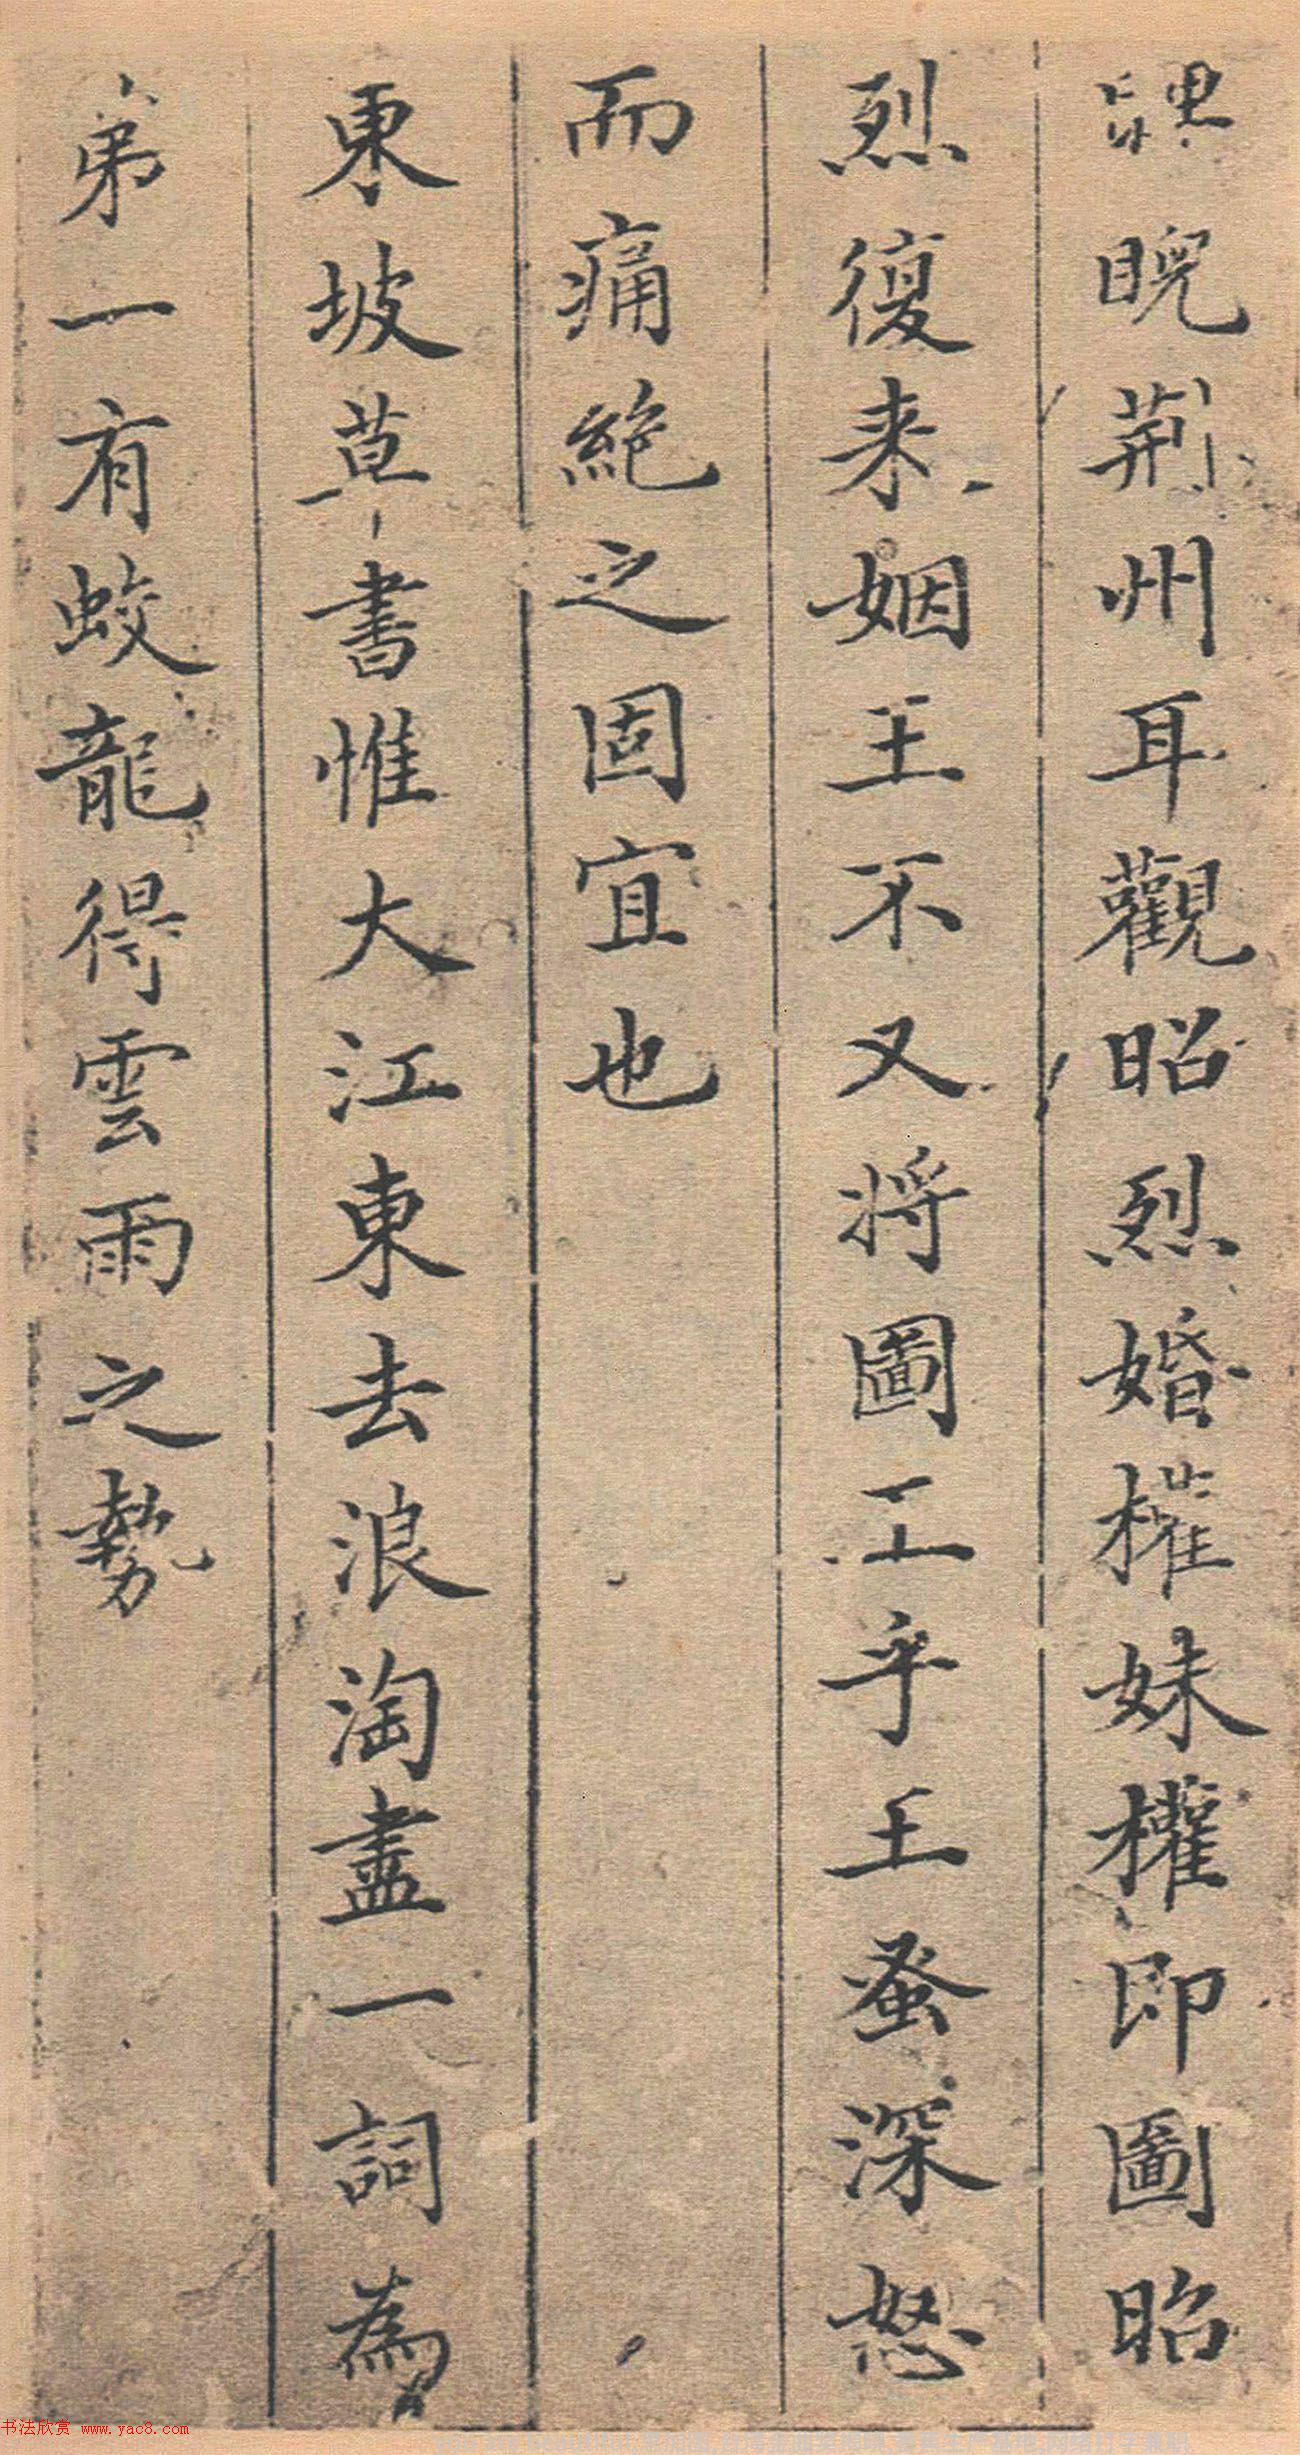 睨荊州耳觀昭烈婚權妹權即圖昭
烈復来姻王不又將圖王乎王蚤深怒
而痛絶之固宜也
東坡草書惟大江東去浪淘盡一詞為
弟一有蛟龍得雲雨之勢
书法欣赏 www.yac8.com